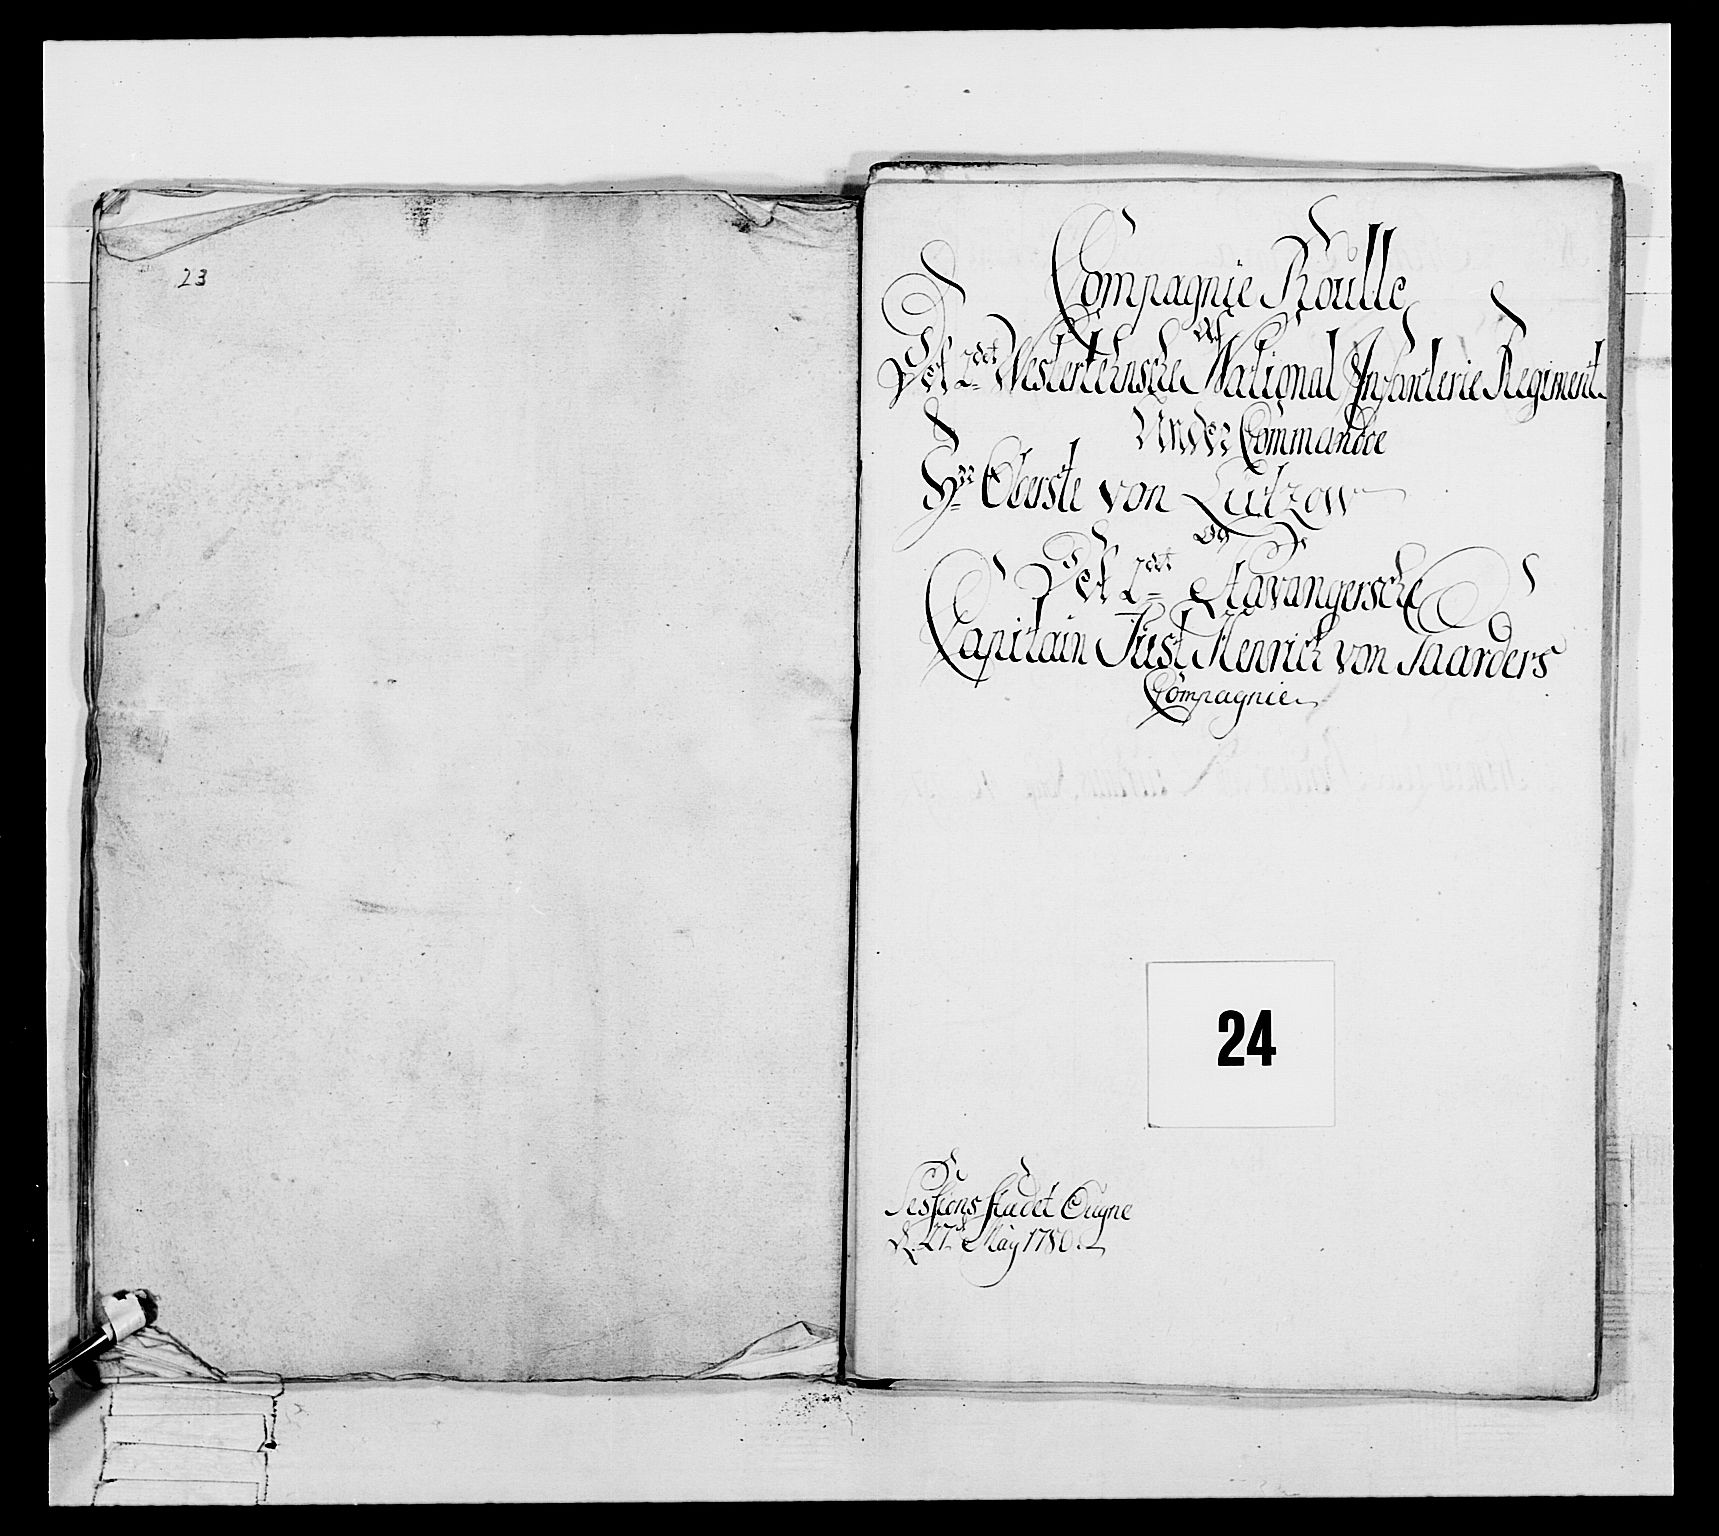 23
Compagnie Roulle
Af
Det 2det Westerlehnske National Infanterie Regiment
Under Commandoe
Hrr Oberste von Lutzow
Og
Det 2det Stavangerske
Capitain Just Henrick von Taarders
Compagnie
24
Sessions stædet Ougne
d. 27de May 1780.